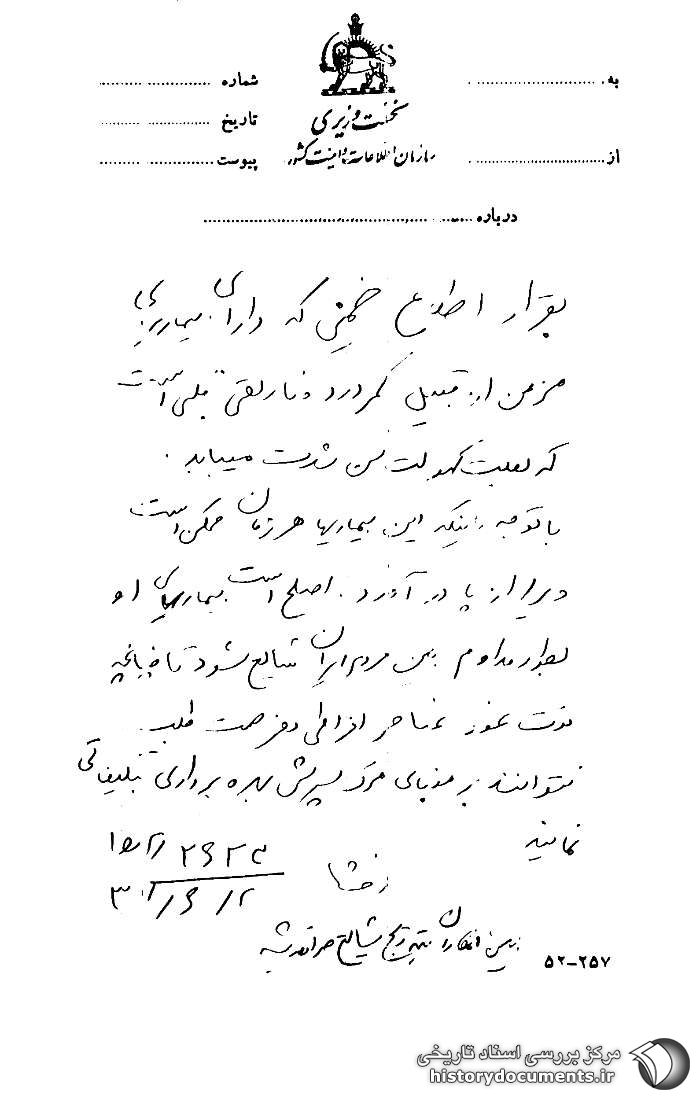 به. ........................
شماره ............. ..........
نخست وزیری
تاریخ ............. ..........
از ........................
سازمان اطلاعات و امنیت کشور
پیوست ............. ..........
درباره ........................
بقرار اطلاع خمینی که دارای بیماریهای
مزمن از قبیل کمردرد و نارسائی قلبی است
که بعلت کهولت سن شدت مییابد.
با توجه باینکه این بیماریها هر زمان ممکن است
ویرا از پا در آورد. اصلح است بیماریهای او
بطور مداوم بین مردم ایران شایع شود تا چنانچه
فوت نمود عناصر افراطی و فرصت طلب
نتوانند بر مبنای مرگ پسرش بهره برداری تبلیغاتی
نمایند
بین افکار بتدریج شایع خواهد شد
۵۲-۲۵۷
مرکز بررسی اسناد تاریخی
historydocuments.ir